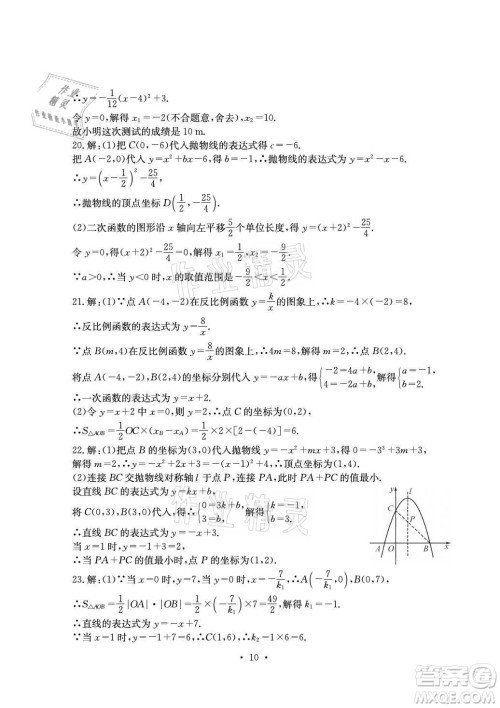 ∴y=-1/12(x-4)²+3.
令 y=0,解得 x₁=-2(不合题意,舍去),x₂=10.
故小明这次测试的成绩是 10 m.
20.解:(1)把 C(0,-6)代入抛物线得 c=-6.
把 A(-2,0)代入 y=x²+bx-6 得 b=-1,∴抛物线的表达式为 y=x²-x-6.
∴y=(x-1/2)²-25/4.
∴抛物线的顶点坐标 D(1/2,-25/4).
(2)二次函数的图形沿 x 轴向左平移 5/2 个单位长度,得 y=(x+2)²-25/4.
令 y=0 得(x+2)²-25/4=0,解得 x₁=1/2,x₂=-9/2.
∵a>0,∴当 y<0 时,x 的取值范围是-9/2<x<1/2.
21.解:(1)∵点 A(-4,-2)在反比例函数 y=k/x 的图象上,∴k=-4×(-2)=8,
∴反比例函数的表达式为 y=8/x.
∵点 B(m,4)在反比例函数 y=8/x 的图象上,∴4m=8,解得 m=2.
将点 A(-4,-2),B(2,4)的坐标分别代入 y=ax+b,得{-2=-4a+b, 4=2a+b,解得{a=1, b=2.
∴一次函数的表达式为 y=x+2.
(2)令 y=x+2 中 x=0,则 y=2,∴点 C 的坐标为(0,2),
∴S△AOB=1/2 OC×(xB-xA)=1/2×2×[2-(-4)]=6.
22.解:(1)把点 B 的坐标(3,0)代入抛物线 y=-x²+mx+3,得 0=-3²+3m+3,
解得 m=2.∴y=-x²+2x+3=-(x-1)²+4.∴顶点坐标为(1,4).
(2)连接 BC 交抛物线对称轴 l 于点 P,连接 PA,此时 PA+PC 的值最小.
设直线 BC 的表达式为 y=kx+b,
将 C(0,3),B(3,0)代入,得{0=3k+b, 3=b,解得{k=-1, b=3.
∴直线 BC 的表达式为 y=-x+3.
当 x=1 时,y=-1+3=2.
∴当 PA+PC 的值最小时,点 P 的坐标为(1,2).
y
l
C
P
A
O
B
x
23.解:(1)∵当 x=0 时,y=7,当 y=0 时,x=-7/k₁,∴A(-7/k₁,0),B(0,7).
∴S△AOB=1/2|OA|·|OB|=1/2×(-7/k₁)×7=49/2,解得 k₁=-1.
∴直线的表达式为 y=-x+7.
∵当 x=1 时,y=-1+7=6,∴C(1,6),∴k₂=1×6=6.
· 10 ·
作业精灵
作业精灵
作业精灵
答案圈
MXQE.COM